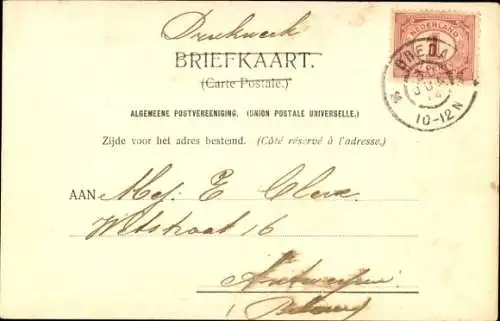 Drukwerk
NEDERLAND
1
BRIEFKAART.
(Carte Postale.)
BREDA
10-12N
ALGEMEENE POSTVEREENIGING. (UNION POSTALE UNIVERSELLE.)
Zijde voor het adres bestemd. (Côté réservé à l'adresse.)
AAN Mej. E
Wetstraat 16
Antwerpen